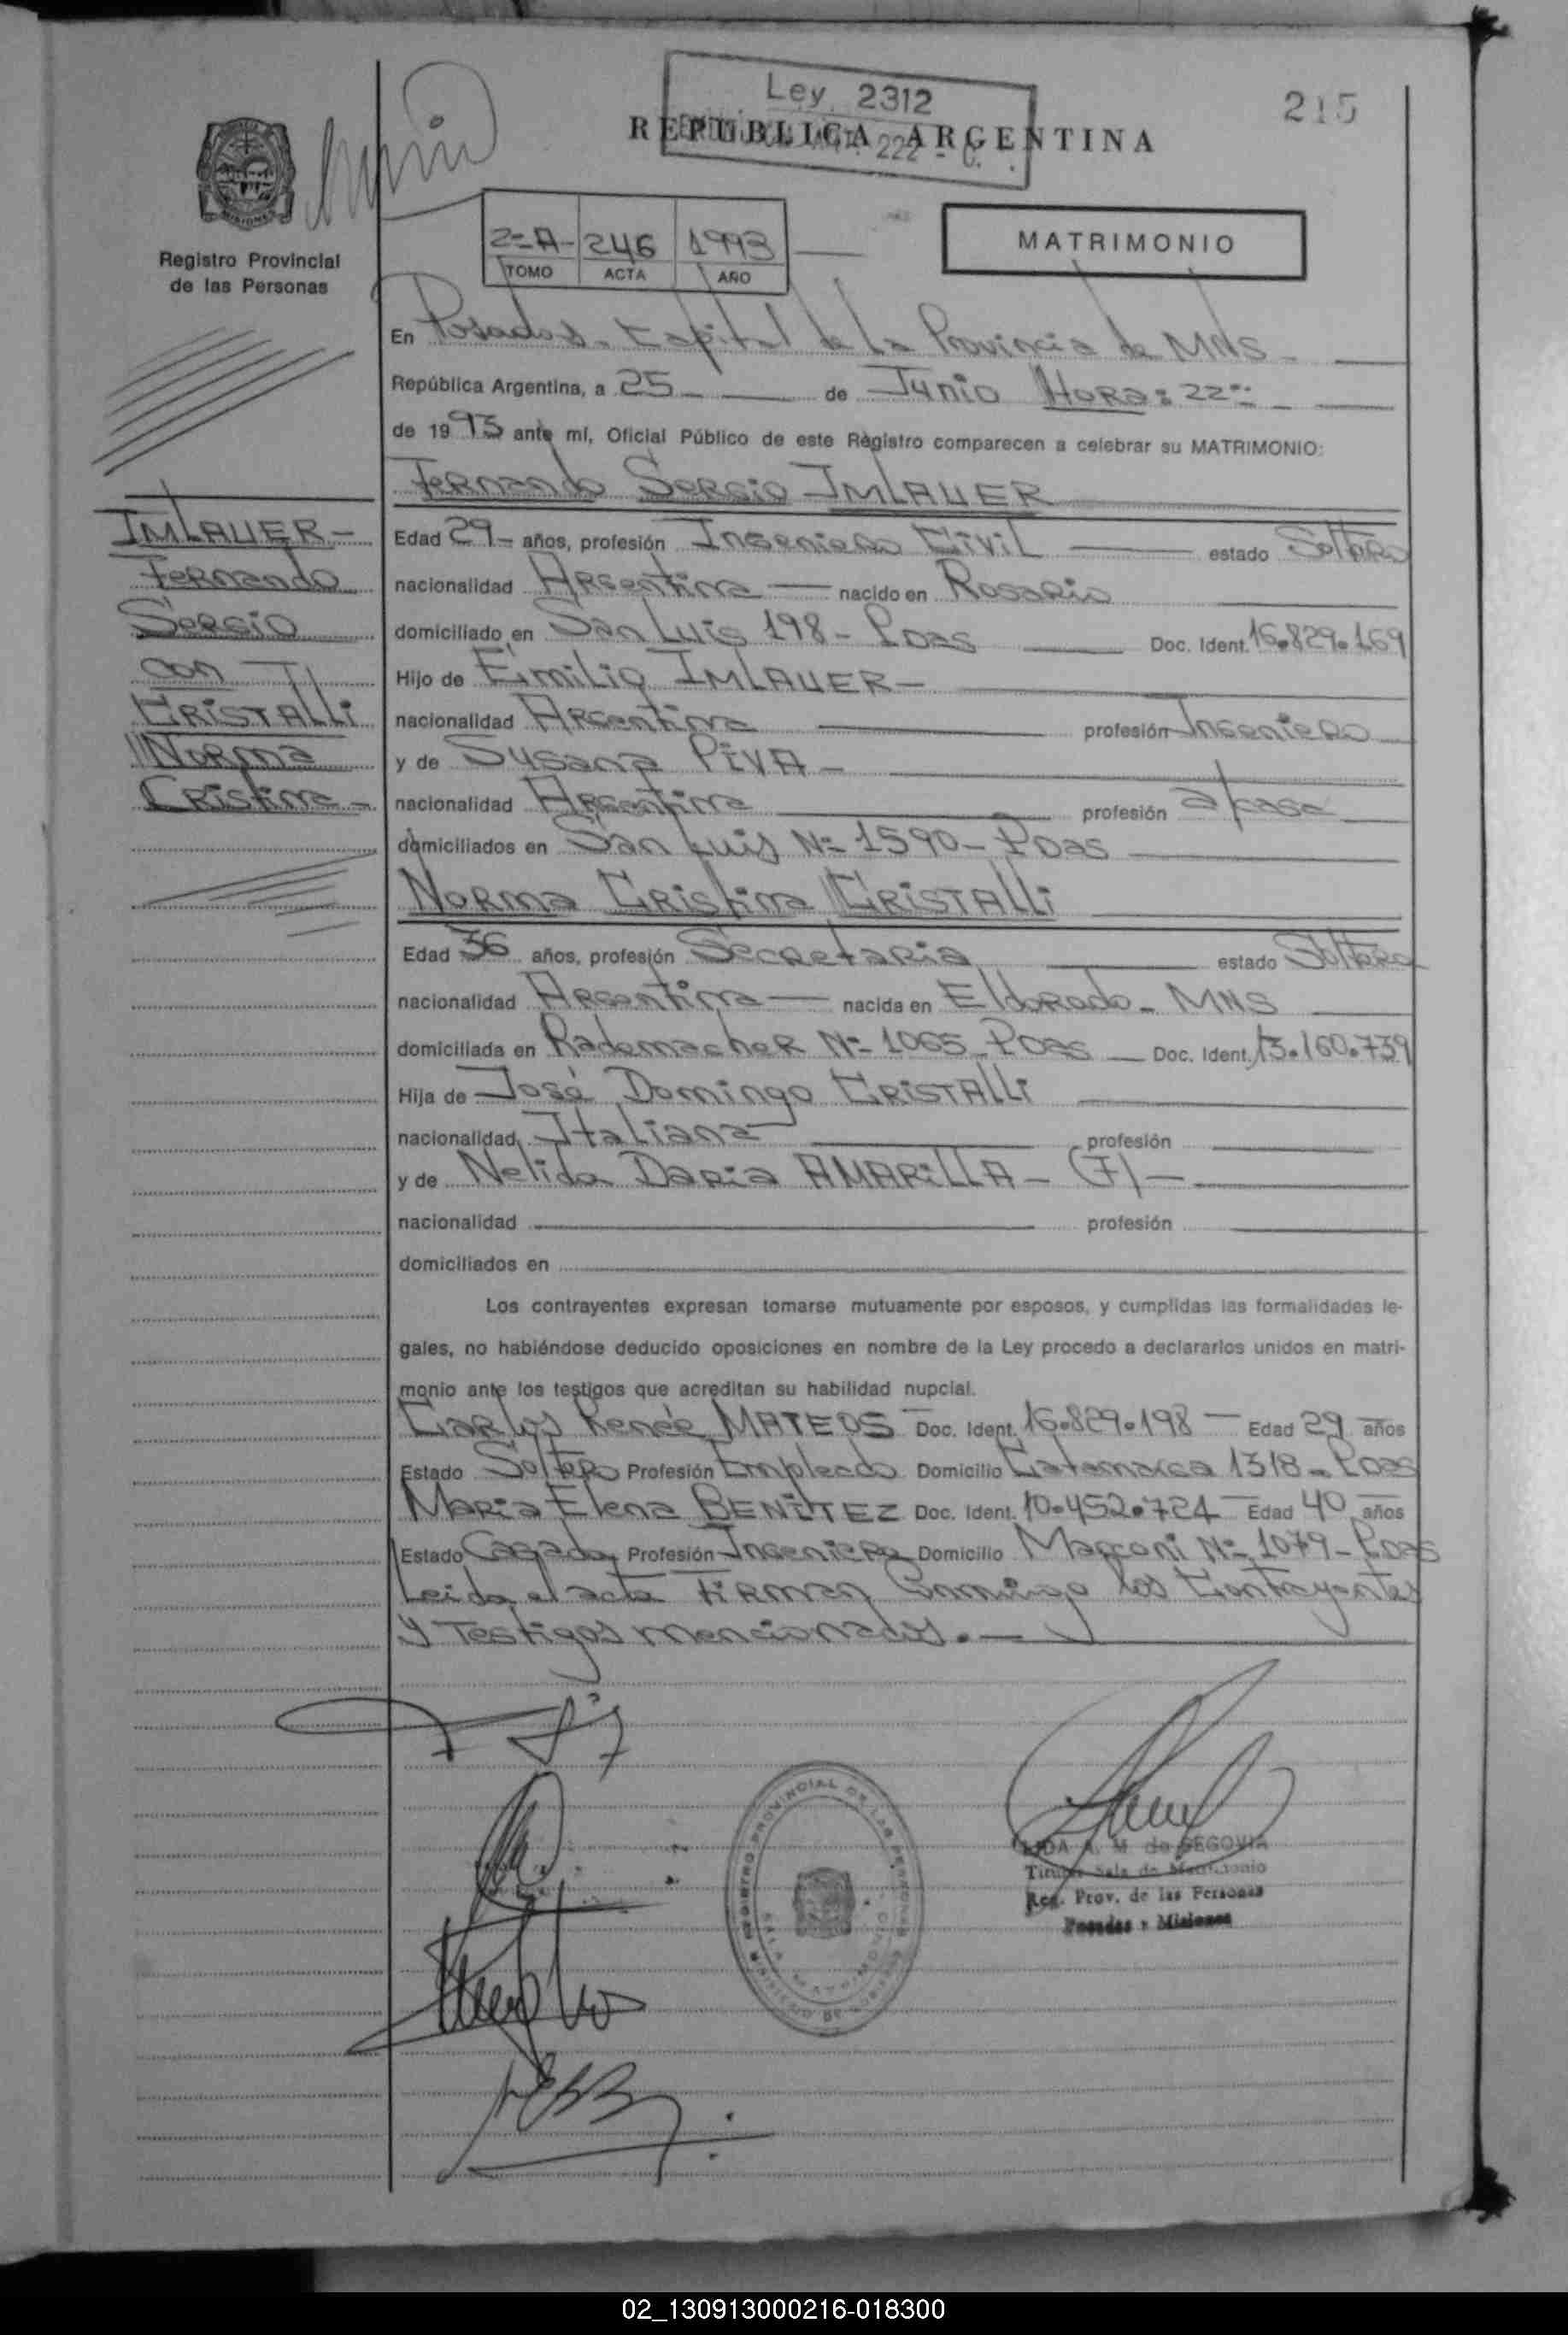 Ley 2312
215
REPUBLICA ARGENTINA
222
2=A- 246 1993
TOMO ACTA AÑO
MATRIMONIO
Registro Provincial
de las Personas
En Posadas - Capital de la Provincia de MNS -
República Argentina, a 25 - de Junio HORA: 22
de 1993 ante mí, Oficial Público de este Registro comparecen a celebrar su MATRIMONIO:
Fernando Sergio IMLAUER
IMLAUER -
Fernando
Sergio
con
CRISTALLI
Norma
Cristina -
Edad 29 - años, profesión Ingeniero Civil estado Soltero
nacionalidad Argentina nacido en Rosario
domiciliado en San Luis 198 - Pdas Doc. Ident. 16.829.169
Hijo de Emilio IMLAUER -
nacionalidad Argentina profesión Ingeniero
y de Susana PIVA -
nacionalidad Argentina profesión a/casa
domiciliados en San Luis Nº 1590 - Pdas
Norma Cristina CRISTALLI
Edad 36 años, profesión Secretaria estado Soltera
nacionalidad Argentina nacida en Eldorado - MNS
domiciliada en Rademacher Nº 1065 - Pdas Doc. Ident. 13.160.739
Hija de José Domingo CRISTALLI
nacionalidad Italiana profesión
y de Nelida Daria AMARILLA - (F) -
nacionalidad profesión
domiciliados en
Los contrayentes expresan tomarse mutuamente por esposos, y cumplidas las formalidades le-
gales, no habiéndose deducido oposiciones en nombre de la Ley procedo a declararlos unidos en matri-
monio ante los testigos que acreditan su habilidad nupcial.
Carlos Renée MATEOS Doc. Ident. 16.829.198 Edad 29 años
Estado Soltero Profesión Empleado Domicilio Catamarca 1318 - Pdas
Maria Elena BENITEZ Doc. Ident. 10.452.724 Edad 40 años
Estado Casada Profesión Ingeniera Domicilio Marconi Nº 1079 - Pdas
Leida el acta Firman Conmigo los Contrayentes
y Testigos mencionados. -
REGISTRO PROVINCIAL DE LAS PERSONAS
LIDA A. M. de SEGOVIA
Titular Sala de Matrimonio
Reg. Prov. de las Personas
Posadas - Misiones
02_130913000216-018300